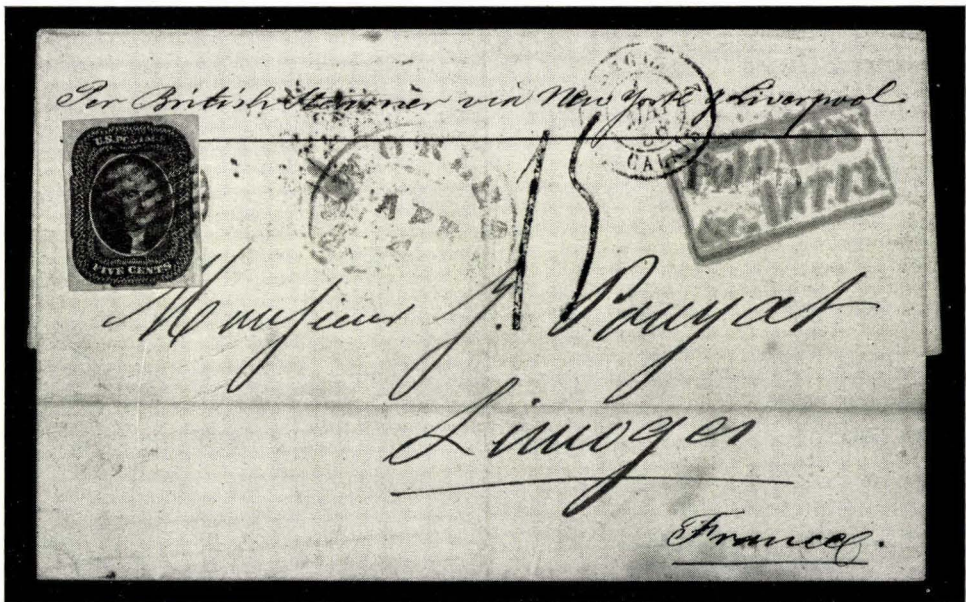 Per British Steamer via New York & Liverpool
U.S. POSTAGE
FIVE CENTS
ORLEANS
APR
15
CALAIS
COLONIES
&c. ART.13.
Monsieur J. Pouyat
Limoges
France.